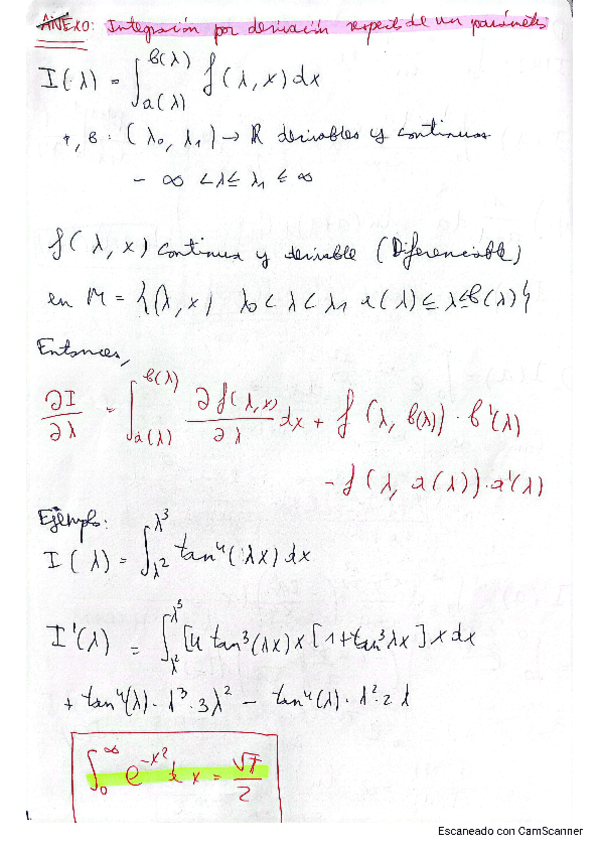 ANEXO: Integración por derivación respecto de un parámetro
I(λ) = ∫_{a(λ)}^{b(λ)} f(λ, x) dx
a, b : (λ₀, λ₁) → ℝ derivables y continuas
- ∞ < λ ≤ λ₁ ≤ ∞
f(λ, x) continua y derivable (Diferenciable)
en M = {(λ, x) λ₀ < λ < λ₁ a(λ) ≤ λ ≤ b(λ)}
Entonces,
∂I/∂λ = ∫_{a(λ)}^{b(λ)} ∂f(λ, x)/∂λ dx + f(λ, b(λ)) · b'(λ)
- f(λ, a(λ)) · a'(λ)
Ejemplo:
I(λ) = ∫_{λ²}^{λ³} tan⁴(λx) dx
I'(λ) = ∫_{λ²}^{λ³} [4 tan³(λx) x [1+tan³λx] x dx
+ tan⁴(λ) · λ³ · 3λ² - tan⁴(λ) · λ² · 2λ
∫₀^∞ e^{-x²} dx = √π/2
Escaneado con CamScanner